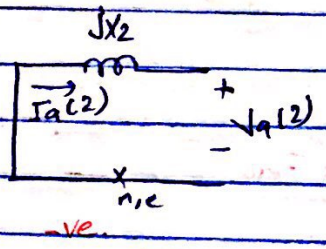 jX2
Ia(2)
+
Va(2)
-
n,e
-ve